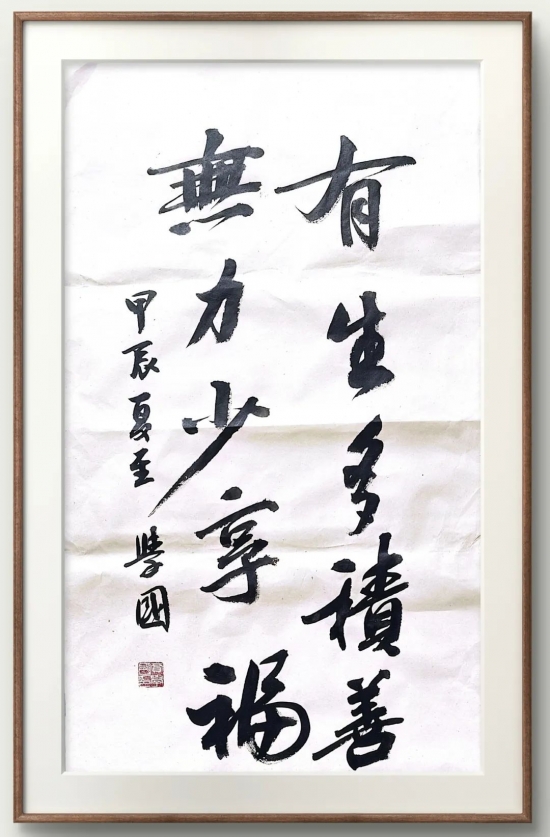 有生多積善
無力少享福
甲辰夏至 學國